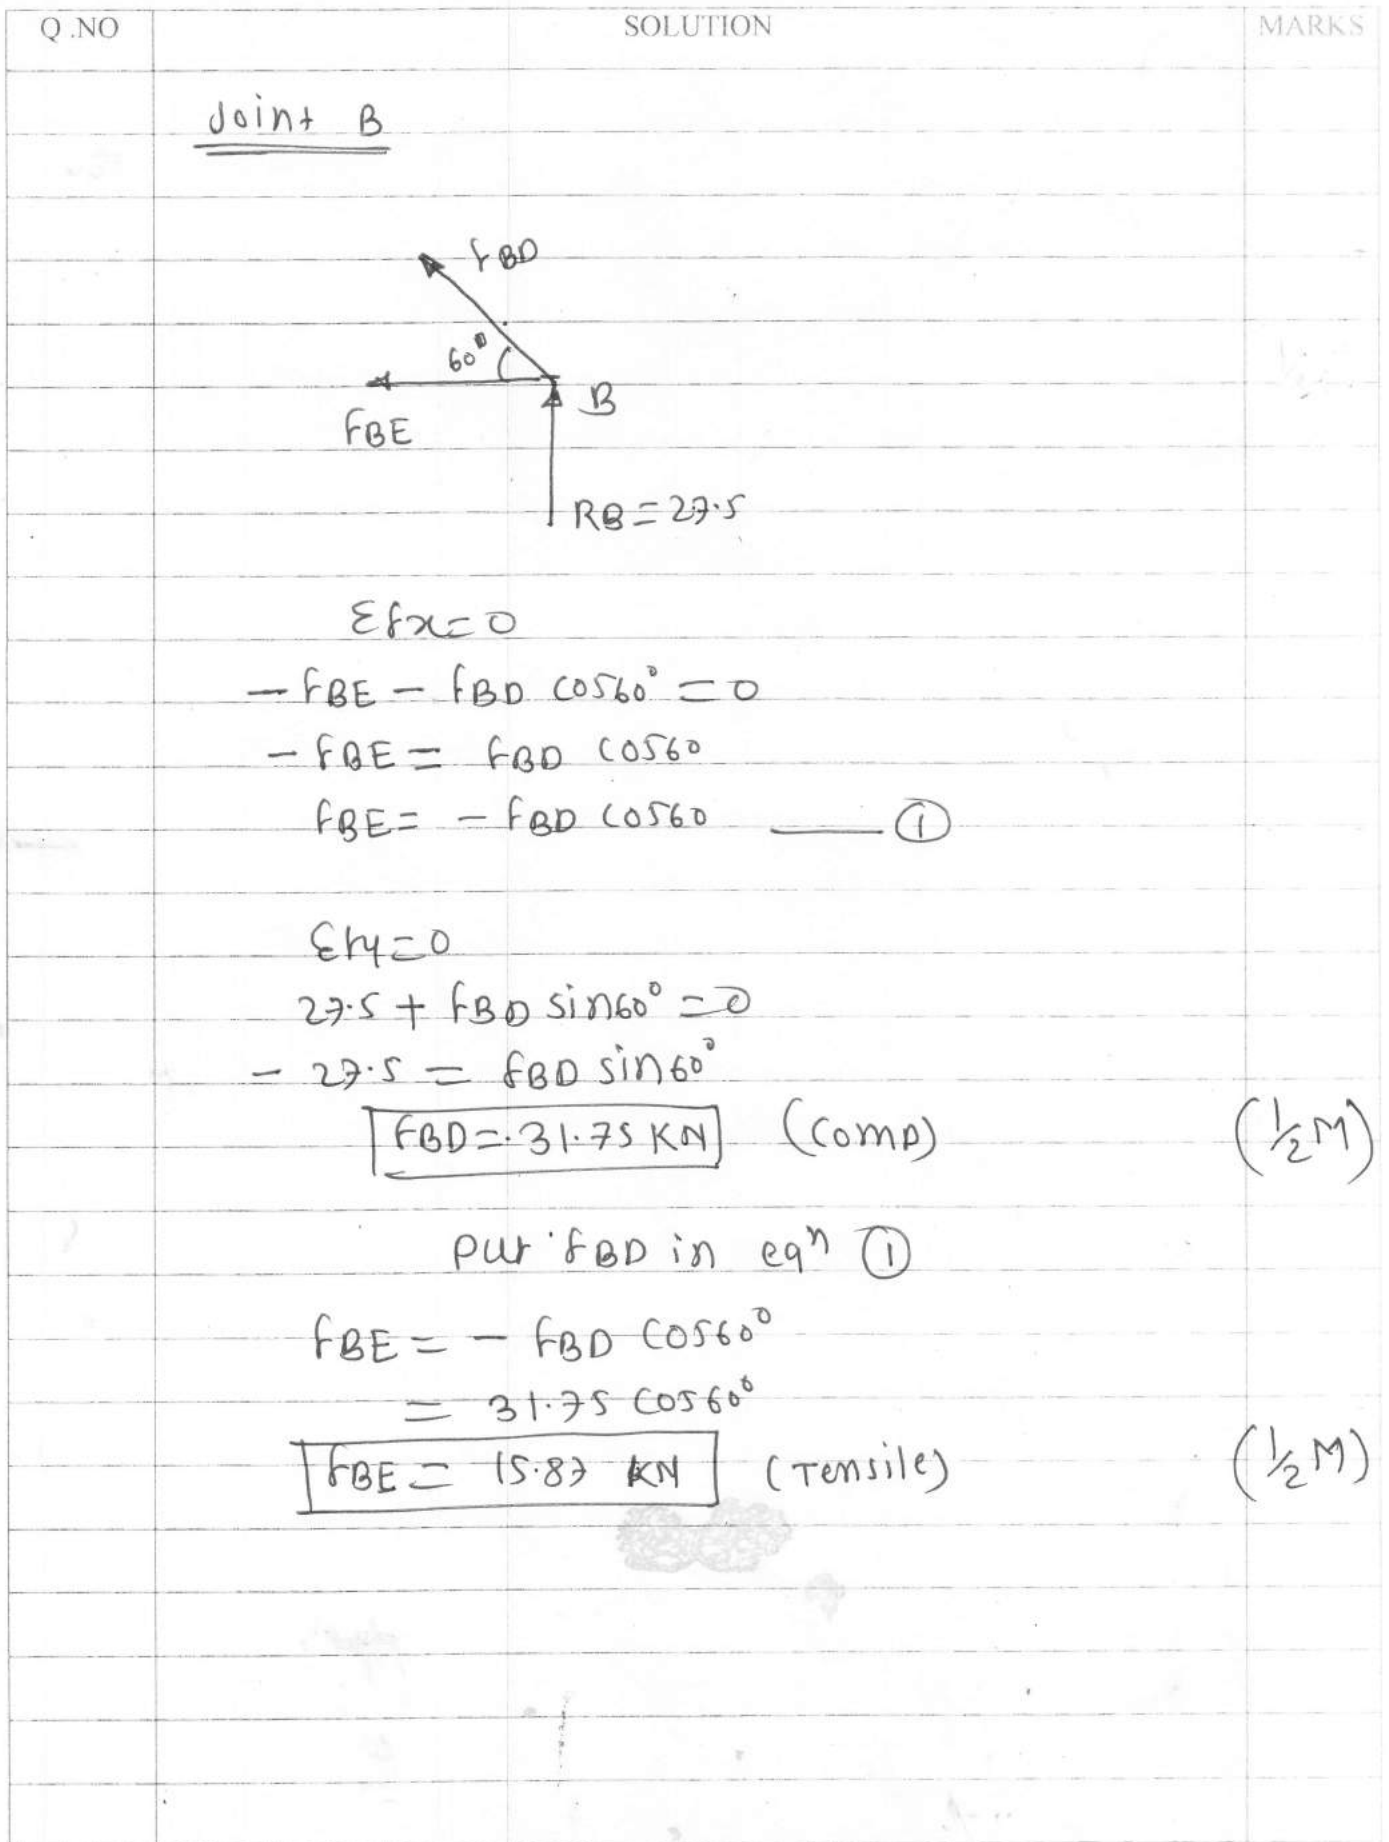 Q.NO SOLUTION MARKS
Joint B
FBD
60°
B
FBE
RB = 27.5
Σfx = 0
- FBE - FBD cos60° = 0
- FBE = FBD cos60
FBE = - FBD cos60 —— ①
Σfy = 0
27.5 + FBD sin60° = 0
- 27.5 = FBD sin60°
FBD = - 31.75 KN (comp) (½M)
put FBD in eqⁿ ①
FBE = - FBD cos60°
= 31.75 cos60°
FBE = 15.87 KN (Tensile) (½M)